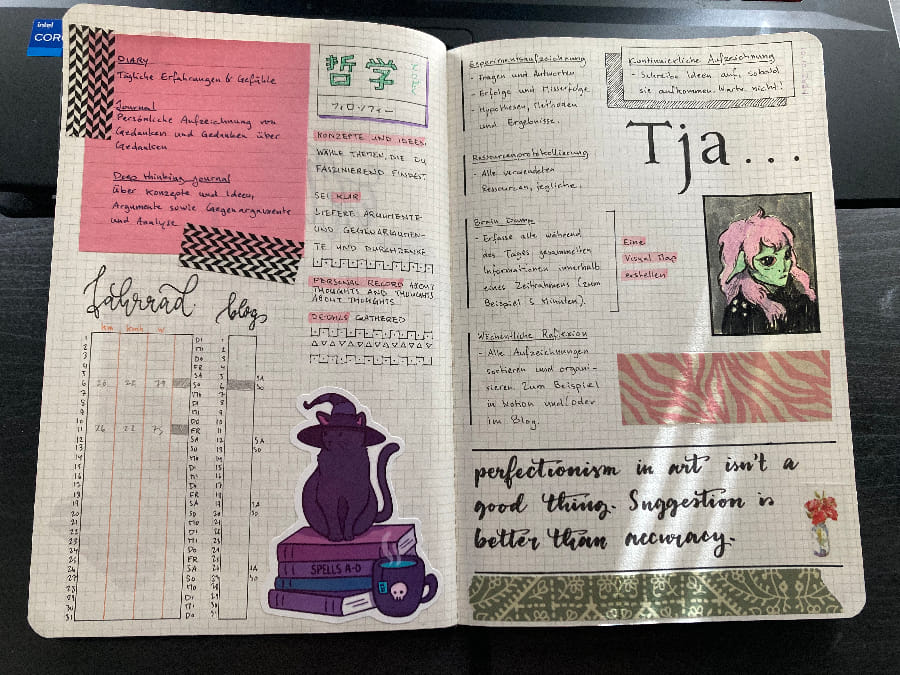 intel
DIARY
Tägliche Erfahrungen & Gefühle
Journal
Persönliche Aufzeichnung von
Gedanken und Gedanken über
Gedanken
Deep thinking journal
über Konzepte und Ideen,
Argumente sowie Gegenargumente
und Analyse
哲学
フィロソフィー
KONZEPTE UND IDEEN.
WÄHLE THEMEN, DIE DU
FASZINIEREND FINDEST.
SEI KLAR
LIEFERE ARGUMENTE
UND GEGENARGUMEN-
TE UND DURCHDENKE.
PERSONAL RECORD ABOUT
THOUGHTS AND THOUGHTS
ABOUT THOUGHTS.
DETAILS GATHERED
Fahrrad
blog
km kmh w
1 DI 1
2 MI 2
3 DO 3
4 FR 4
5 SA 5 SA
6 20 22 79 SO 6 SO
7 MO 7
8 DI 8
9 MI 9
10 DO 10
11 26 22 75 FR 11
12 SA 12 SA
13 SO 13 SO
14 MO 14
15 DI 15
16 MI 16
17 DO 17
18 FR 18
19 SA 19 SA
20 SO 20 SO
21 MO 21
22 DI 22
23 MI 23
24 DO 24
25 FR 25
26 SA 26 SA
27 SO 27 SO
28 MO 28
29 DI 29
30 MI 30
31 DO 31
SPELLS A-D
Experimentaufzeichnung
- Fragen und Antworten
- Erfolge und Misserfolge
- Hypothesen, Methoden
und Ergebnisse.
Kontinuierliche Aufzeichnung
- Schreibe Ideen auf, sobald
sie aufkommen. Warte nicht!
Tja...
Ressourcenprotokollierung
- Alle verwendeten
Ressourcen, jegliche.
Brain Dump
- Erfasse alle während
des Tages gesammelten
Informationen innerhalb
eines Zeitrahmens (zum
Beispiel 5 Minuten).
Eine
Visual Map
erstellen
Wöchentliche Reflexion
- Alle Aufzeichnungen
sortieren und organi-
sieren. Zum Beispiel
in Notion und/oder
im Blog.
perfectionism in art isn't a
good thing. Suggestion is
better than accuracy.